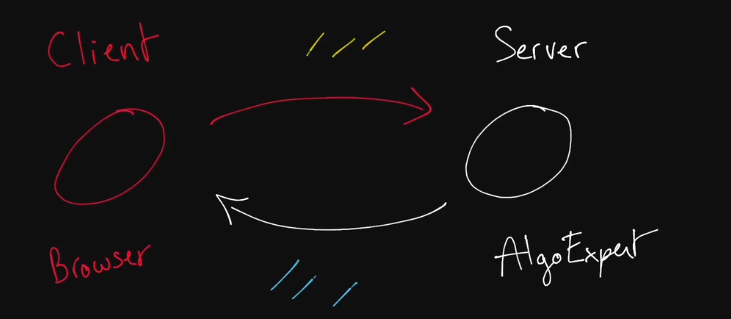 Client
Server
Browser
AlgoExpert